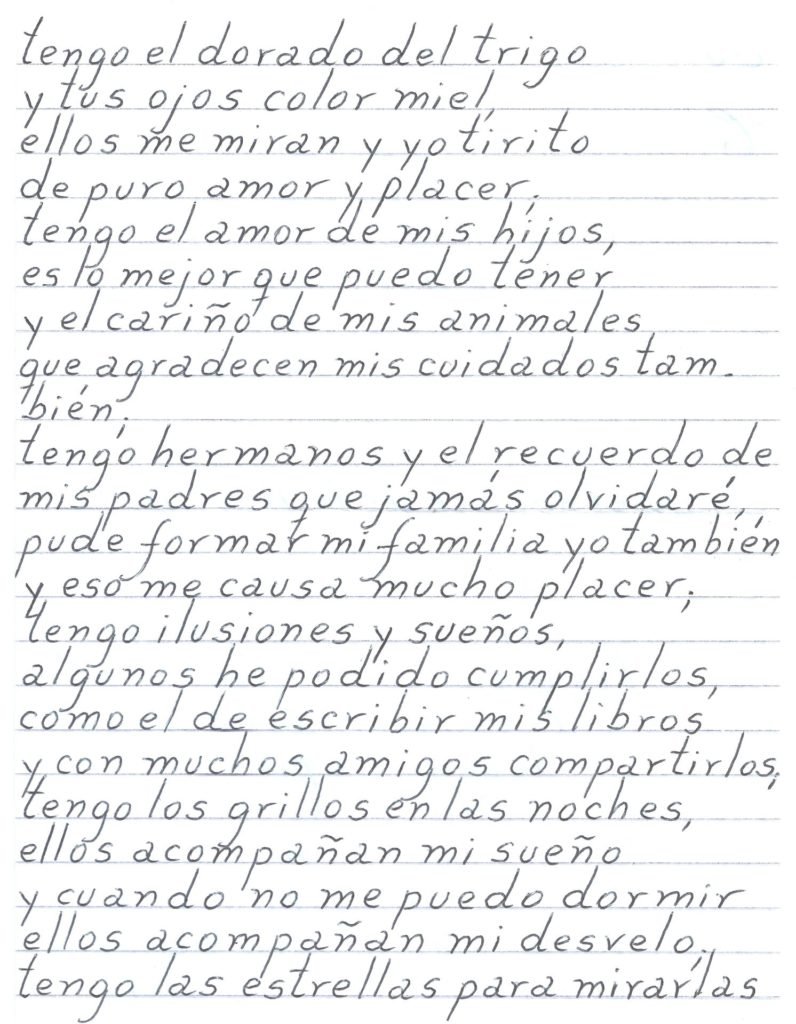 tengo el dorado del trigo
y tus ojos color miel,
ellos me miran y yo tirito
de puro amor y placer;
tengo el amor de mis hijos,
es lo mejor que puedo tener
y el cariño de mis animales
que agradecen mis cuidados tam-
bién;
tengo hermanos y el recuerdo de
mis padres que jamás olvidaré,
pude formar mi familia yo también
y eso me causa mucho placer;
tengo ilusiones y sueños,
algunos he podido cumplirlos,
como el de escribir mis libros
y con muchos amigos compartirlos;
tengo los grillos en las noches,
ellos acompañan mi sueño
y cuando no me puedo dormir
ellos acompañan mi desvelo;
tengo las estrellas para mirarlas